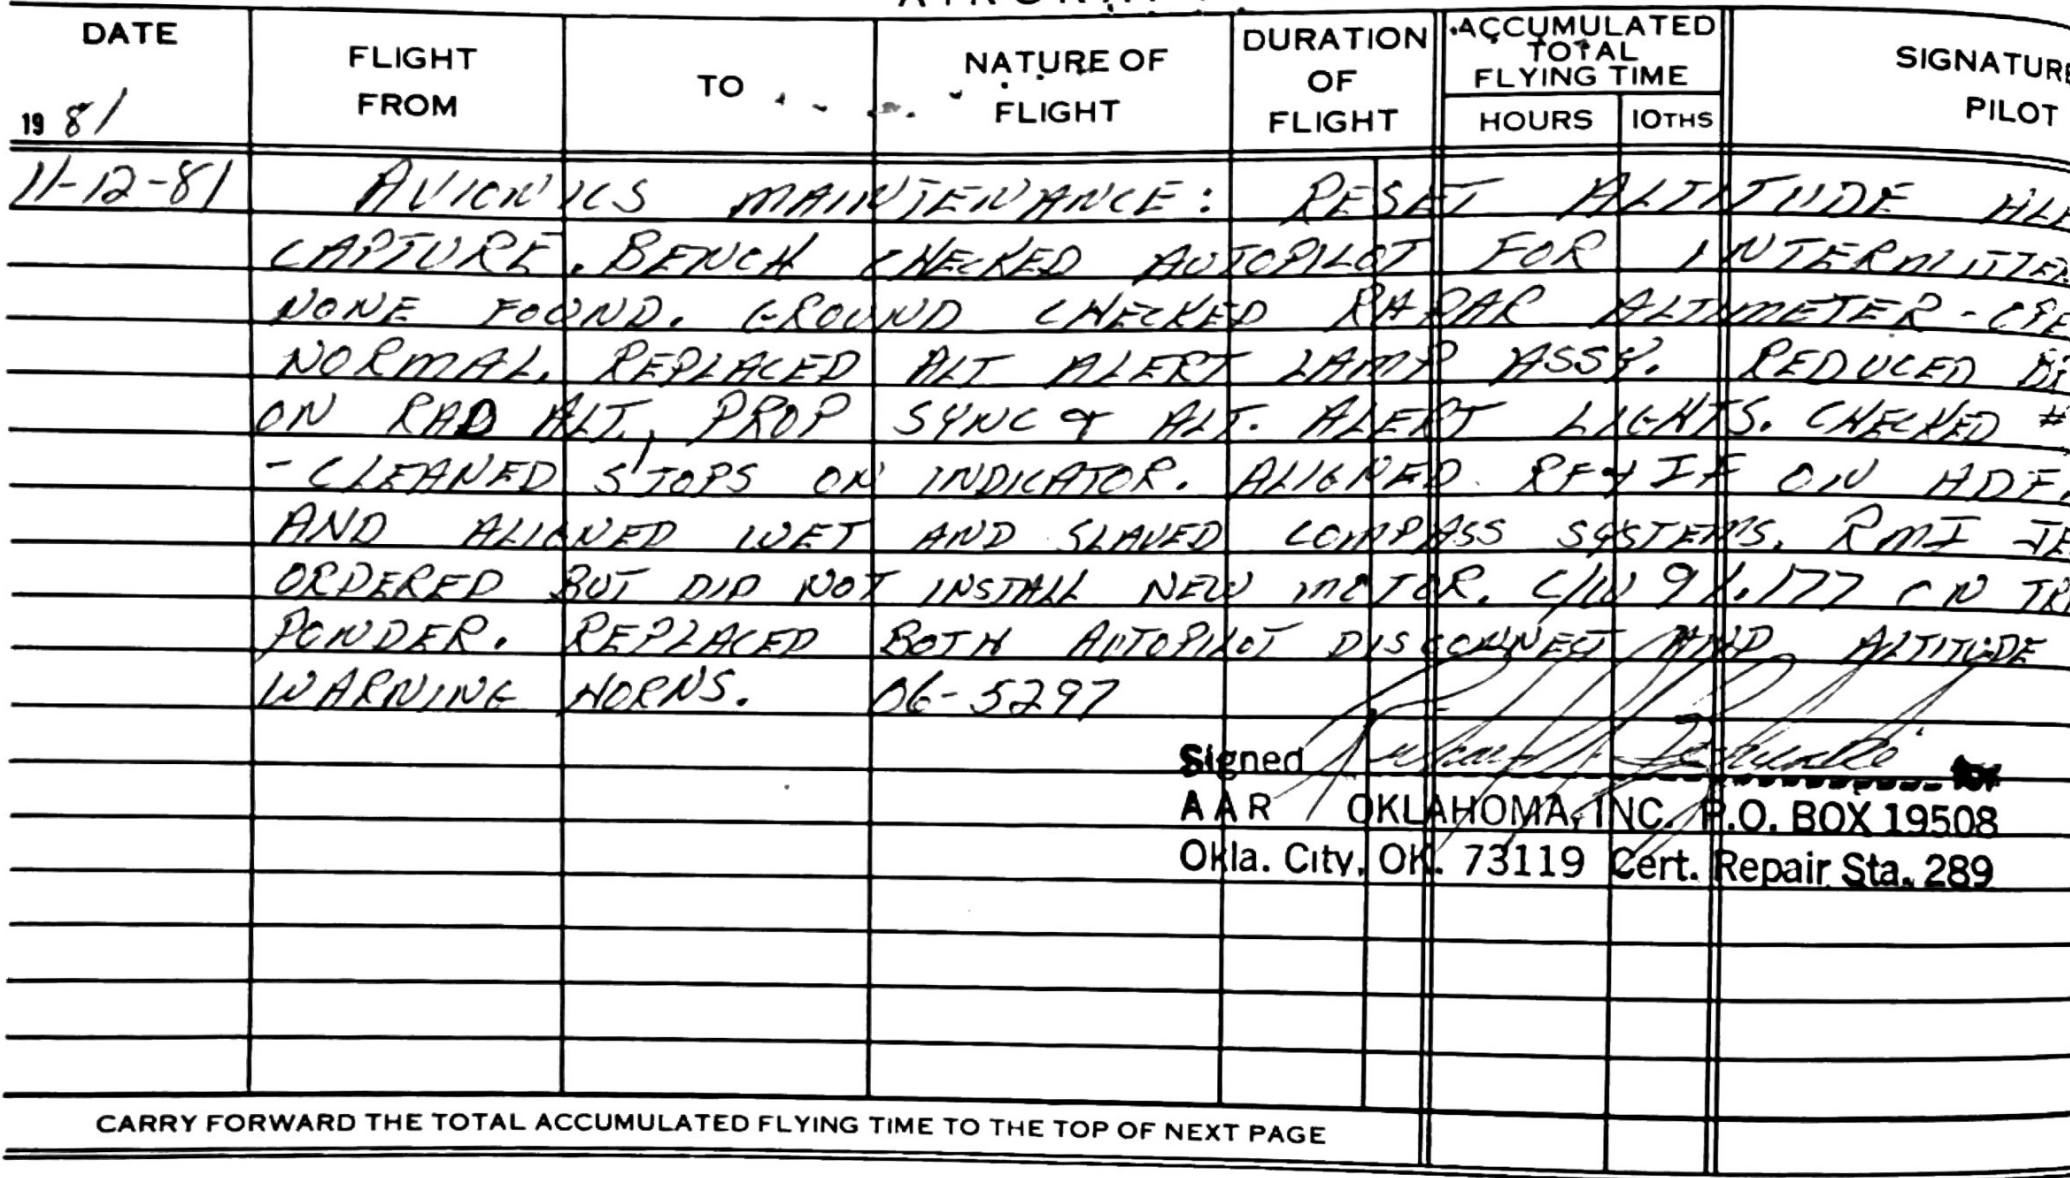 DATE
FLIGHT FROM
TO
NATURE OF FLIGHT
DURATION OF FLIGHT
ACCUMULATED TOTAL FLYING TIME
HOURS
10THS
SIGNATURE
PILOT
19 81
11-12-81 AVIONICS MAINTENANCE: RESET ALTITUDE ALE
CAPTURE. BENCH CHECKED AUTOPILOT FOR INTERMITTE
NONE FOUND. GROUND CHECKED RADAR ALTIMETER - OPE
NORMAL. REPLACED ALT ALERT LAMP ASSY. REDUCED
ON RAD ALT., PROP SYNC & ALT. ALERT LIGHTS. CHECKED #
- CLEANED STOPS ON INDICATOR. ALIGNED RF & IF ON ADF.
AND ALIGNED WET AND SLAVED COMPASS SYSTEMS. RMI
ORDERED BUT DID NOT INSTALL NEW MOTOR. C/W 91.177 ON TR
PONDER. REPLACED BOTH AUTOPILOT DISCONNECT AND ALTITUDE
WARNING HORNS. 06-5297
Signed for
AAR OKLAHOMA, INC. P.O. BOX 19508
Okla. City, OK. 73119 Cert. Repair Sta. 289
CARRY FORWARD THE TOTAL ACCUMULATED FLYING TIME TO THE TOP OF NEXT PAGE